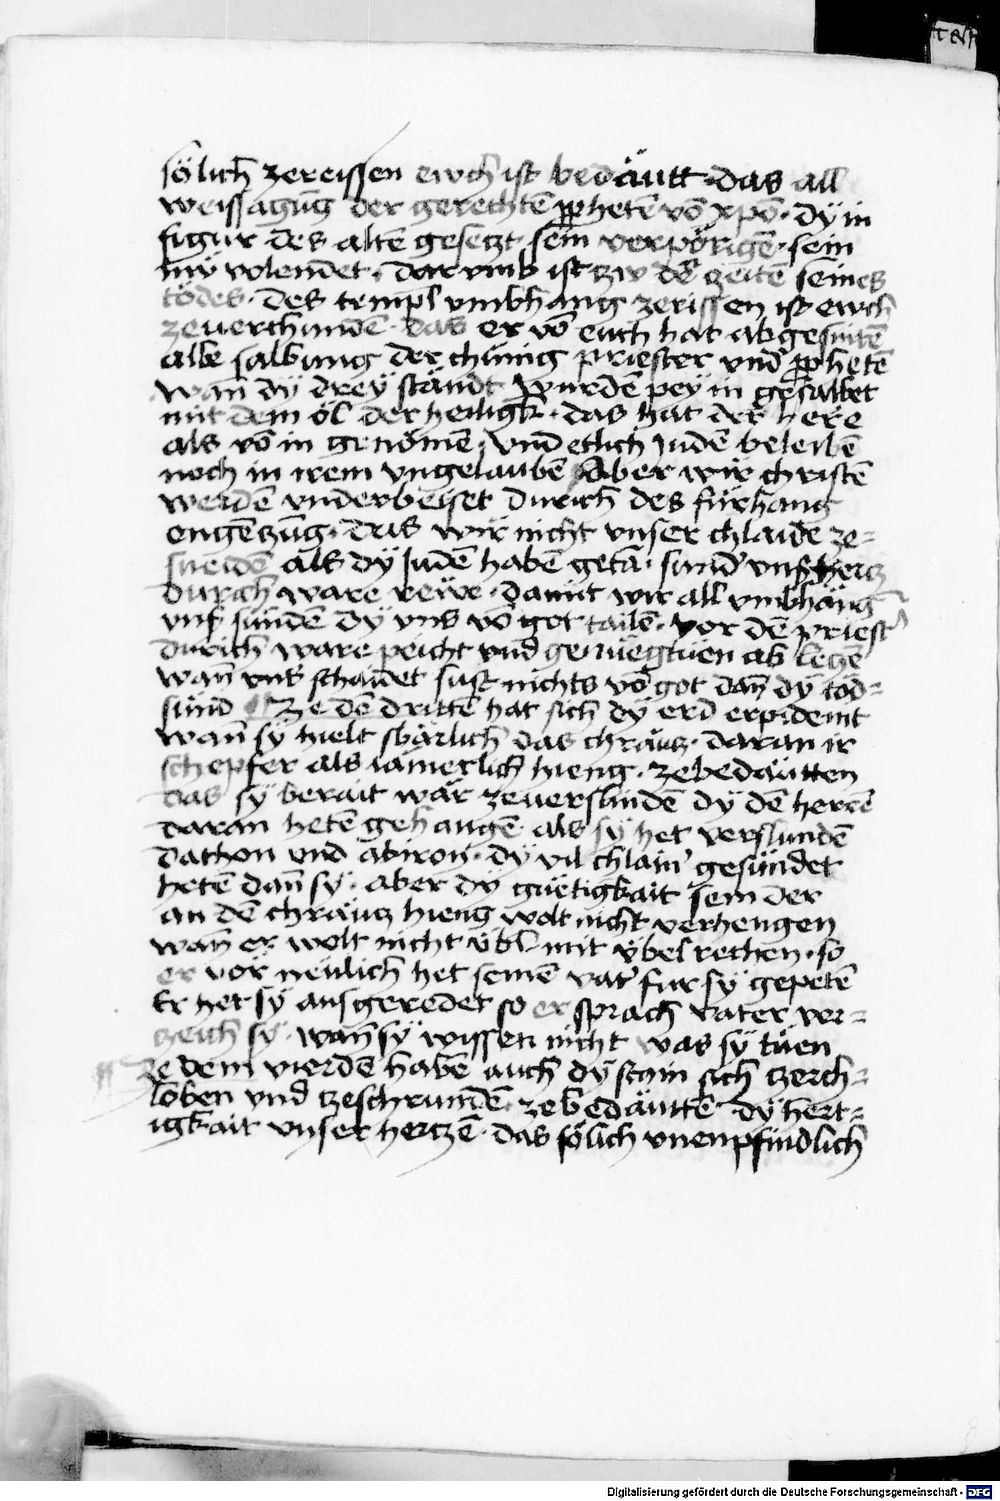 sölich zereissen ewch ist bedäutt · das all
weissagūg der gerechtē ꝓphetē vō xpō · dÿ in
figur des altē gesetzt sein verporigē · sein
nw volendet · dar vmb ist zw dē zeitē seines
todes · des templ vmbhang zerissen ist ewch
zeuerchundē · das er vō euch hat abgesnitē
alle salbung der chünig priester vnd ꝓphetē
wan̄ dÿ dreÿ ständt wurdē peÿ in gesalbet
mit dem öl der heiligk · das hat der here
als vō in genömē · vnd etlich Judē beleibē
noch in irem vngelaubē Aber wir christē
werdē vnderbeiset durich des fürhang
engenzūg · das wir nicht vnser chlaide ze=
sneidē als dÿ Judē habē getā · sund' vnß hertz
durch ware rewe · damit wir all vmbhäng
vnß sündē dÿ vns vō got tailē · vor dē priest'
durich ware peicht vnd genüegtuen ab legē
wan̄ vns schaidet sust nichts vō got dan̄ dÿ tod=
sünd Ze dē drittē hat sich dÿ erd erpidemt
wan̄ sÿ hielt sbärlich das chräutz · daran ir
schepfer als iämerlich hieng · zebedäutten
das sÿ berait wär zeuerslindē dÿ dē herrē
daran hetē gehangē als sÿ het verslundē
dathon vnd abiron · dÿ vil chlain' gesündet
hetē dan̄ sÿ · aber dÿ guetigkait sein der
an dē chräutz hieng wolt nicht verhengen
wan̄ er wolt nicht übl mit übel rechen · so
er vor neulich het seinē vat' fur sÿ gepetē
Er het sÿ ausgeredet so er sprach vater ver=
zeich sÿ · wan̄ sÿ wissen nicht was sÿ tuen
Ze dem vierdē habē auch dÿ stain sich zerch=
loben vnd zeschrundē · zebedäuttē dÿ hert=
igkait vnser hertzē · das sölich vnenpfindlich
Digitalisierung gefördert durch die Deutsche Forschungsgemeinschaft - DFG